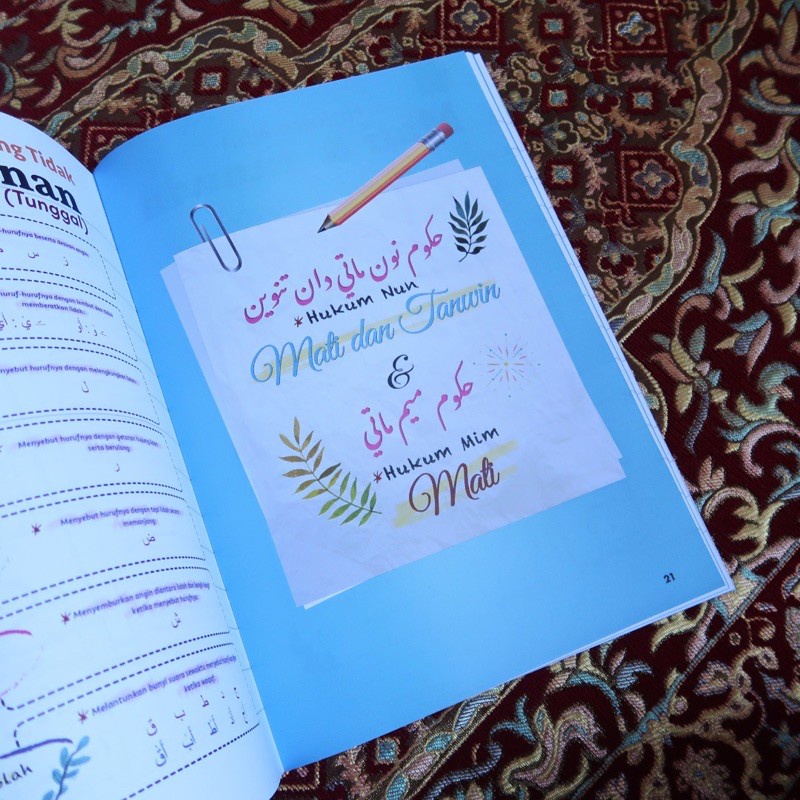 ng Tidak
nan
(Tunggal)
س
Menyebut hurufnya dengan
ل
Menyebut hurufnya dengan getaran hujung lidah
serta berulang:
ر
Menyebut hurufnya dengan tepi lidah secara
memanjang:
ض
Menyemburkan angin diantara lidah dan
ketika menyebut hurufnya:
ش
Melantunkan bunyi suara sewaktu
ketika
ق ب ط ج د
olah
حكوم نون ماتي دان تنوين
*Hukum Nun
Mati dan Tanwin
&
حكوم ميم ماتي
*Hukum Mim
Mati
21